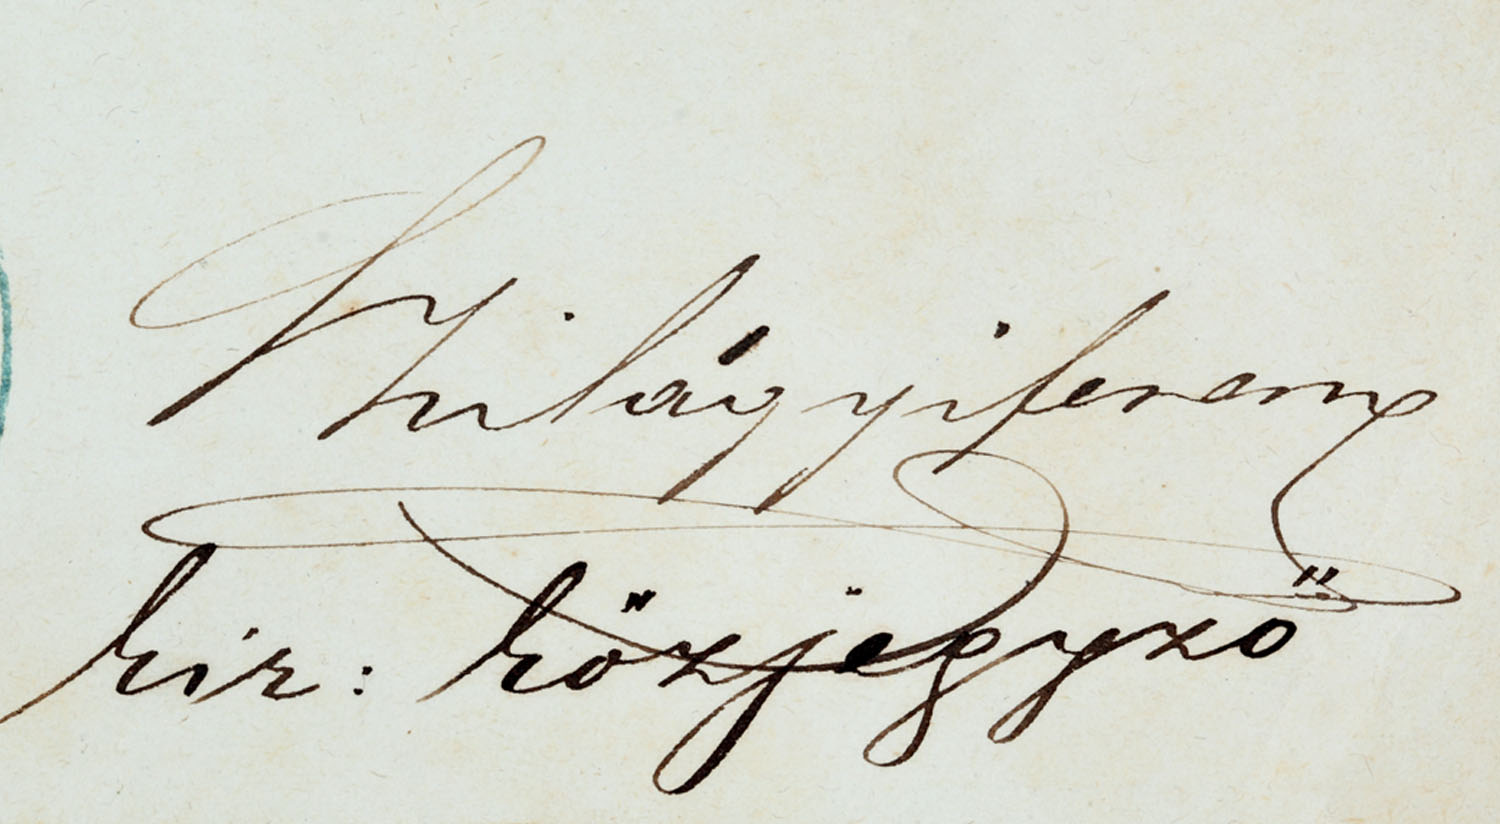 Szilágyi Ferencz
kir: közjegyző